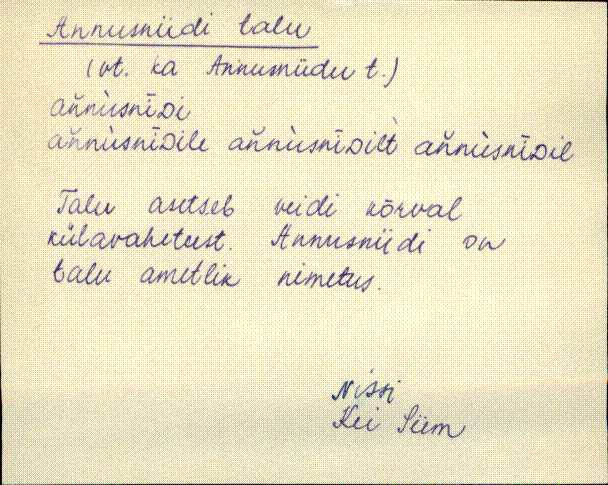 Annusniidi talu
(vt. ka Annusniidu t.)
ań̆nùsnīDi
ań̆nùsnīDile ań̆nùsnīDilt ań̆nùsnīDil
Talu asetseb veidi kõrval
külavaheteest. Annusniidi on
talu ametlik nimetus.
Nissi
Kei Siem